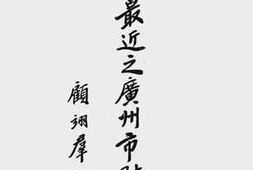 最近之廣州市
顧翊羣